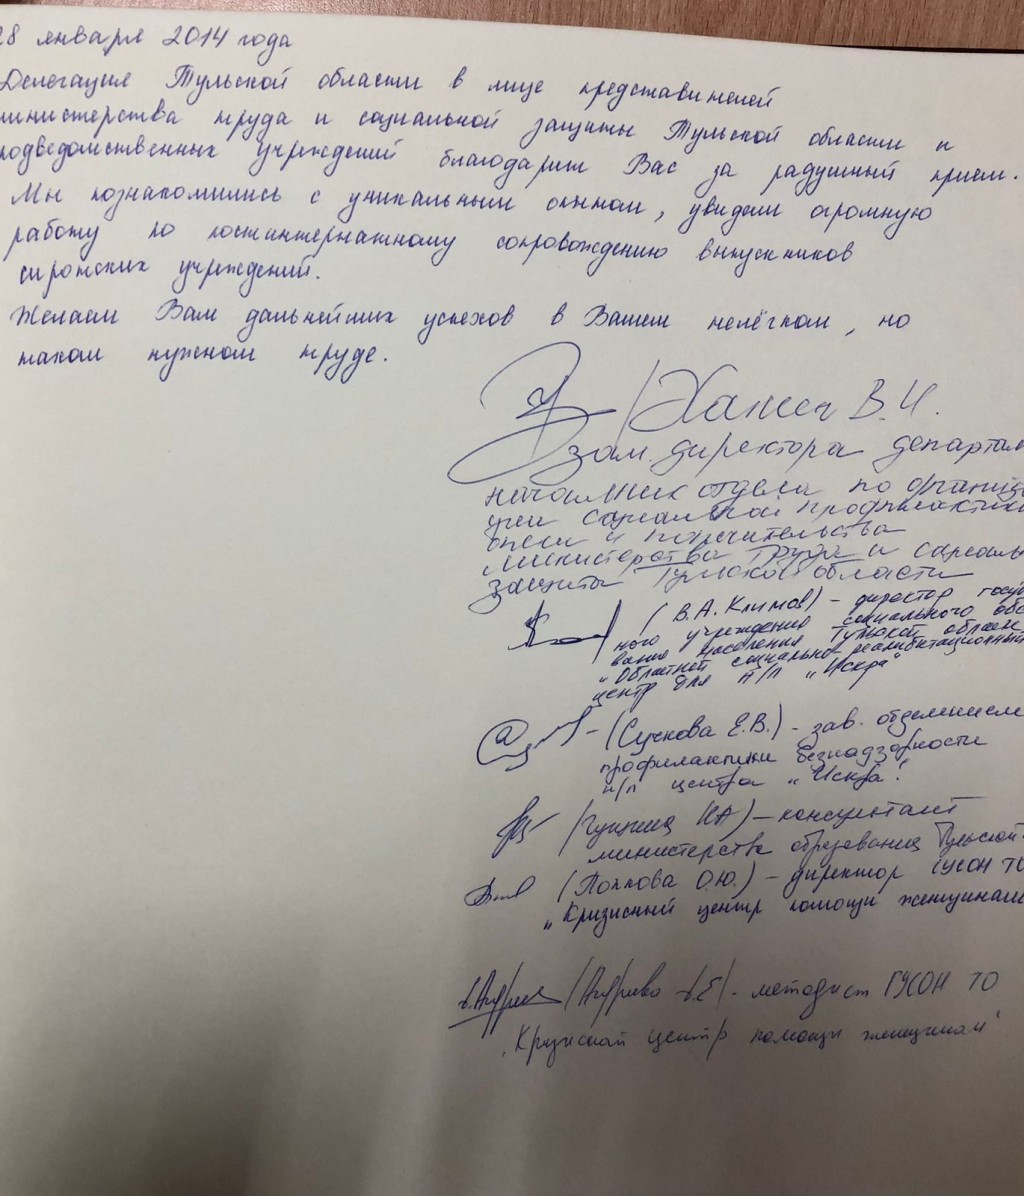 28 января 2014 года
Делегация Тульской области в лице представителей
министерства труда и социальной защиты Тульской области и
подведомственных учреждений благодарит Вас за радушный прием.
Мы познакомились с уникальным опытом, увидели огромную
работу по постинтернатному сопровождению выпускников
сиротских учреждений.
Желаем Вам дальнейших успехов в Вашем нелёгком, но
таком нужном труде.
В.И.
зам. директора департам
начальник отдела по организ
ции социальной профилактики
опеки и попечительства
министерства труда и социаль
защиты Тульской области
(В.А. Климов) – директор госу
ного учреждения социального обс
вания населения Тульской област
„Областной социально-реабилитационный
центр для н/л „Искра"
(Сучкова Е.В.) – зав. отделением
профилактики безнадзорности
н/л центра „Искра".
– консультант
министерства образования Тульской
(Попкова О.Ю.) – директор ГУСОН ТО
„Кризисный центр помощи женщинам
– методист ГУСОН ТО
„Кризисный центр помощи женщинам"